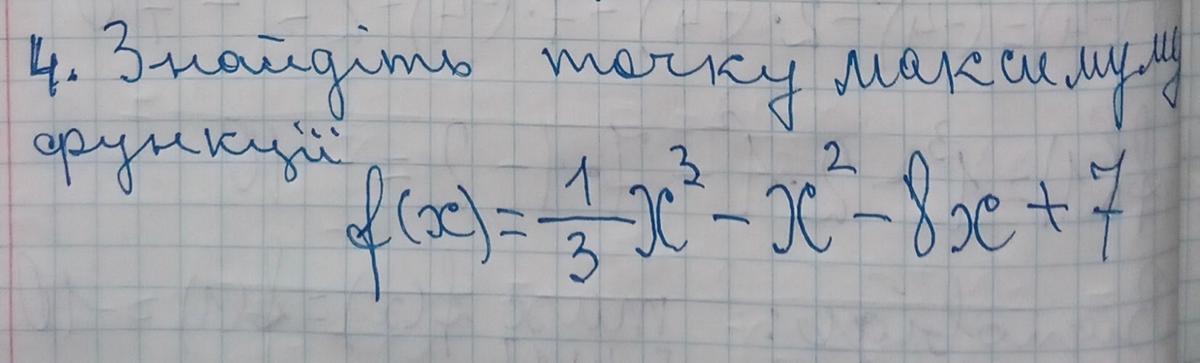 4. Знайдіть точку максимуму
функції
f(x) = 1/3 x³ - x² - 8x + 7